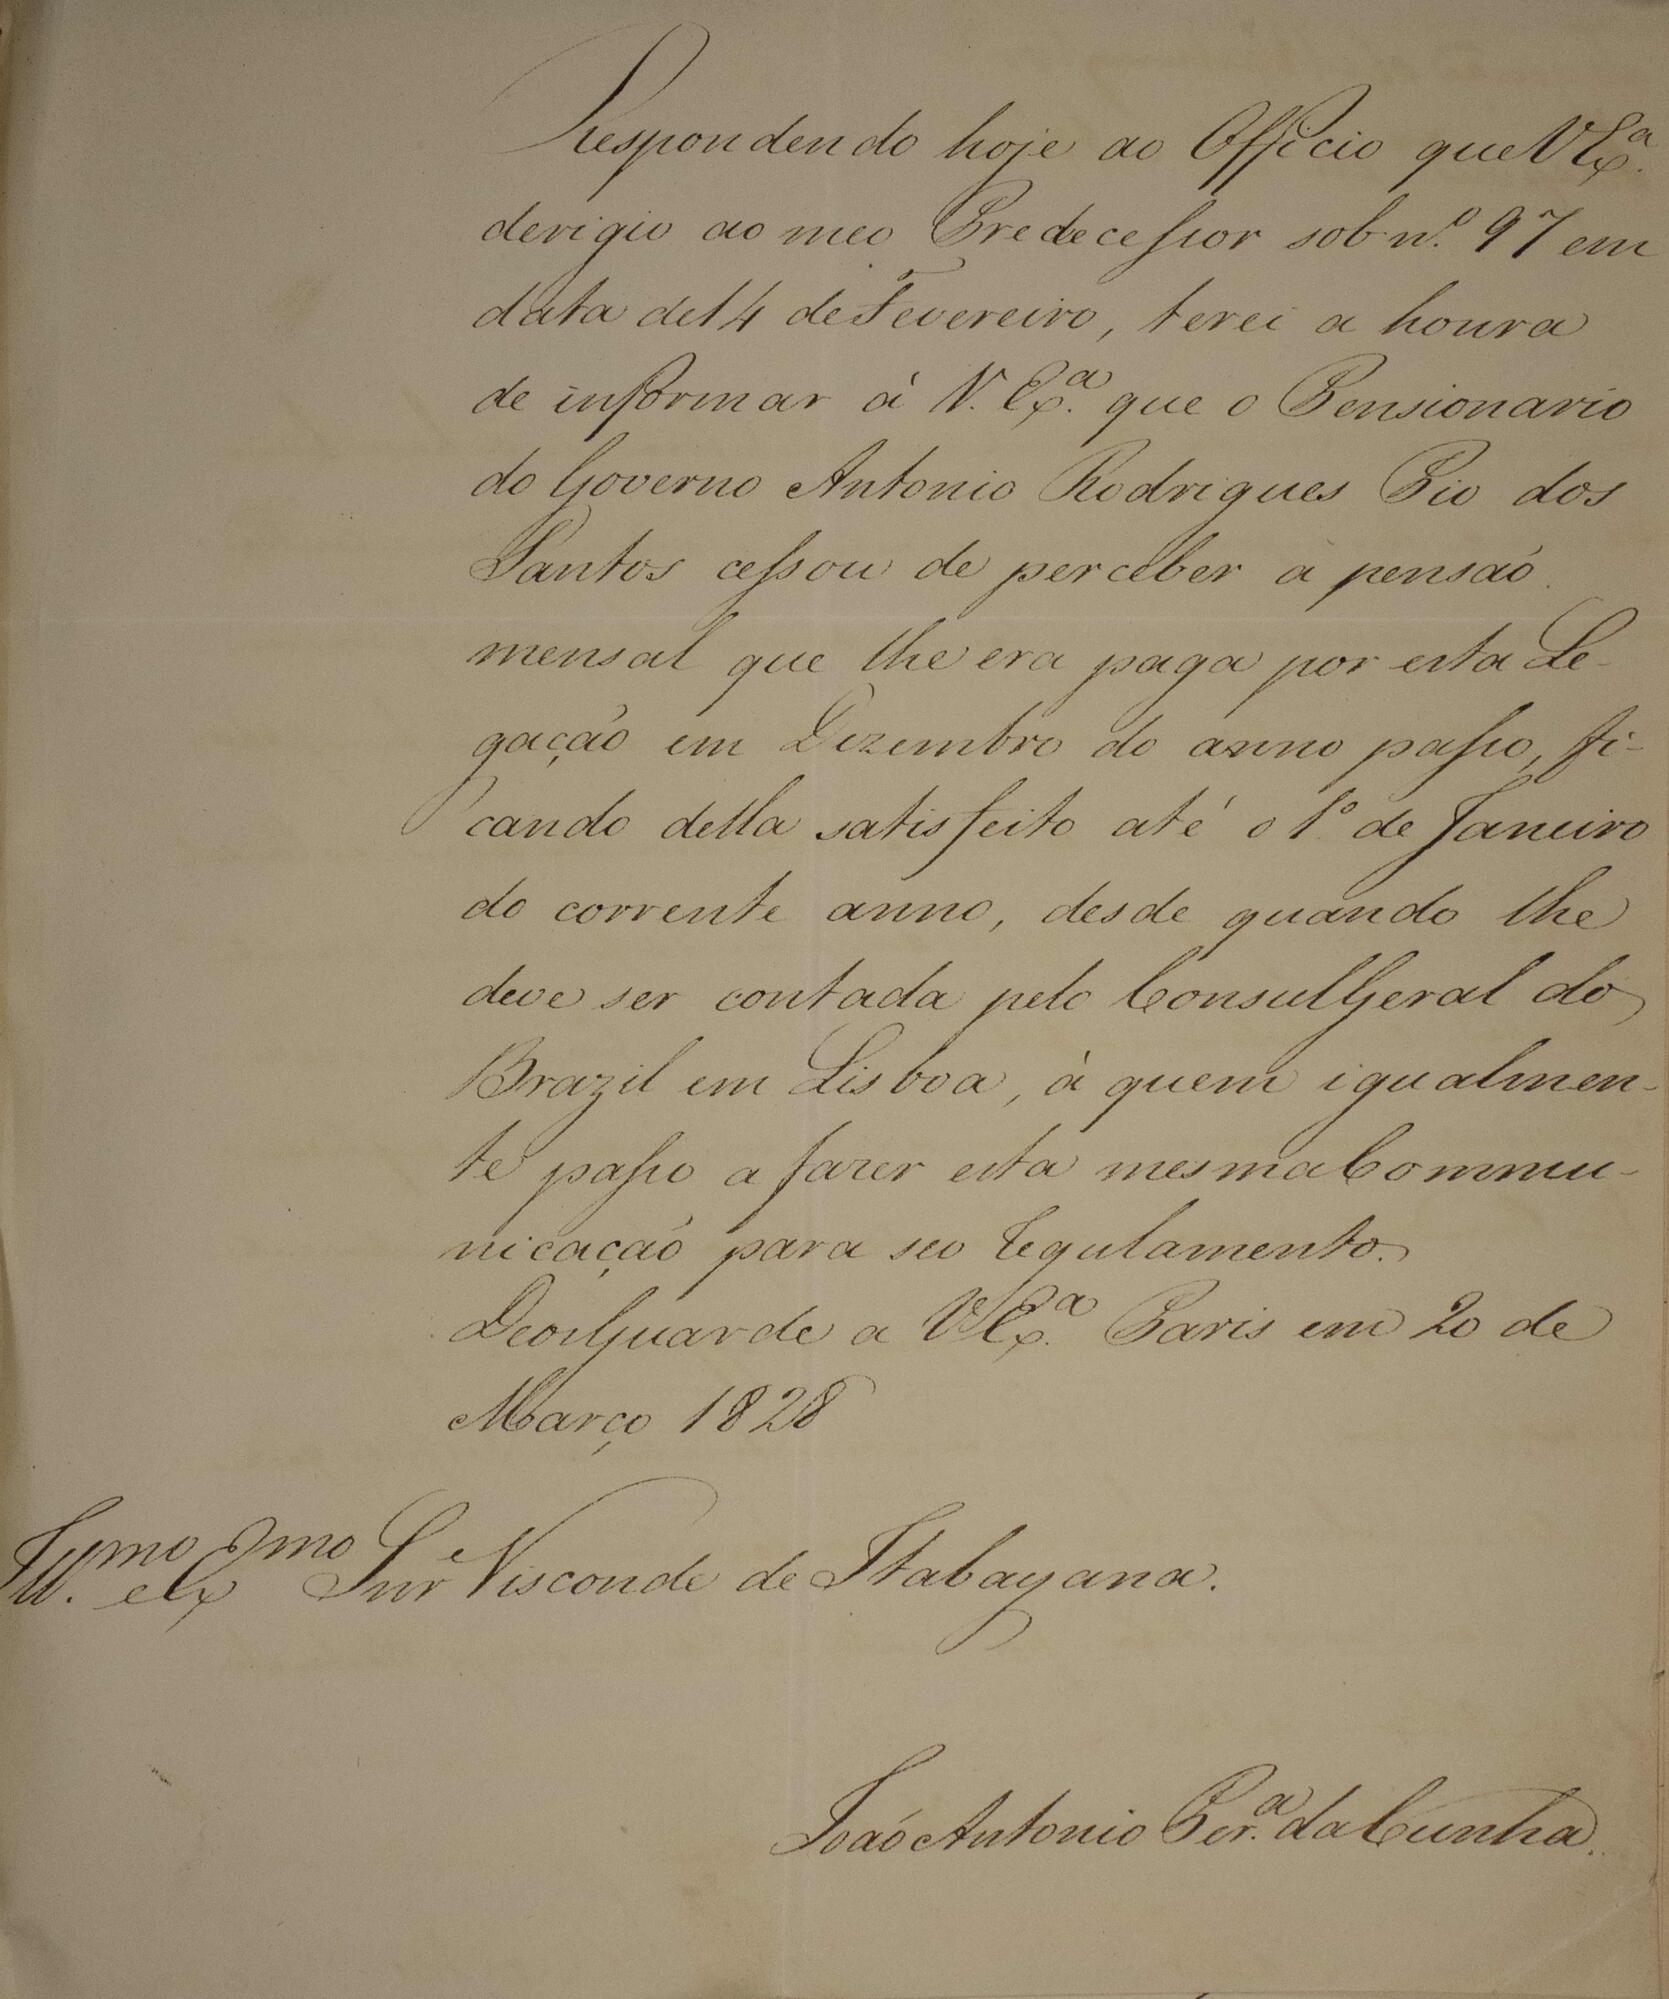 Respondendo hoje ao Officio que V Exª.
derigio ao meo Predecessor sob n.º 97 em
data de 14 de Fevereiro, terei a honra
de informar á V. Exª. que o Pensionario
do Governo Antonio Rodrigues Pio dos
Santos cessou de perceber a pensaõ
mensal que lhe era paga por esta Le-
gaçaõ em Dezembro do anno passo, fi-
cando della satisfeito até o 1º de Janeiro
do corrente anno, desde quando lhe
deve ser contada pelo Consul Geral do
Brazil em Lisboa, á quem igualmen-
te passo a fazer esta mesma Commu-
nicaçaõ para seo regulamento.
Deos Guarde a V Exª. Paris em 20 de
Março 1828
Illmo. e Exmo Snr Visconde de Itabayana.
Joaõ Antonio Perª. da Cunha.